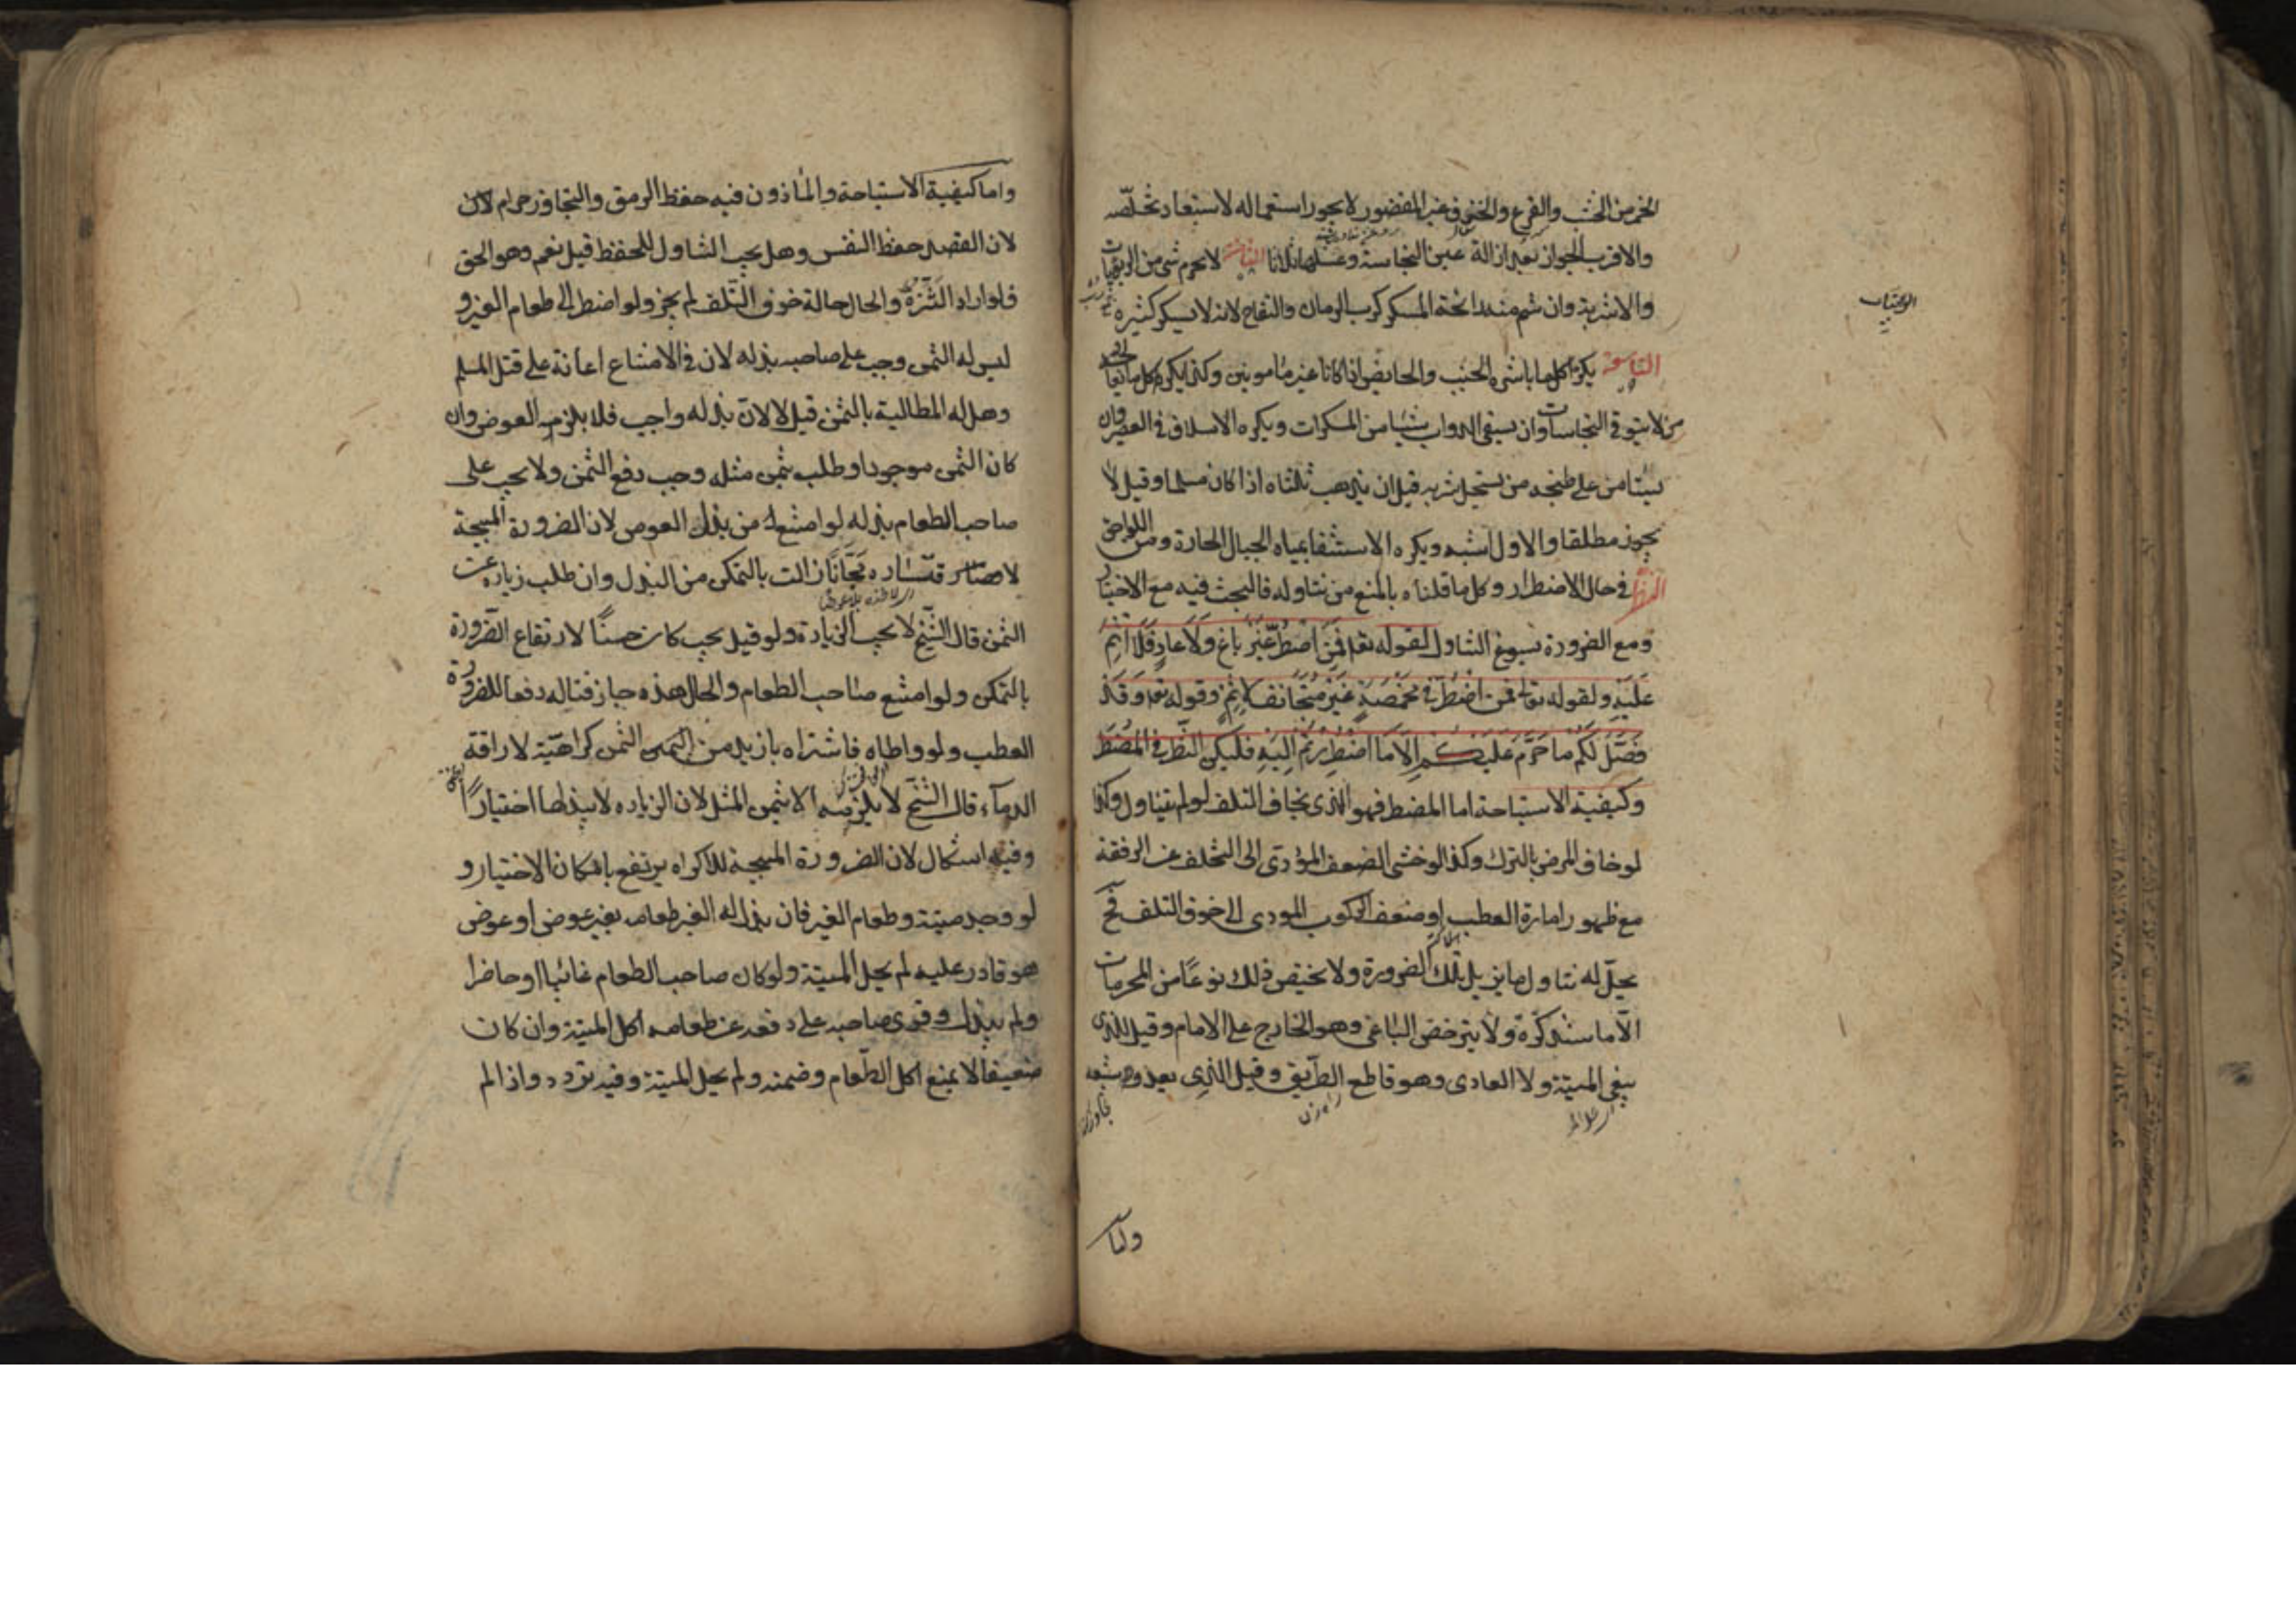 الخمر من الخشب والقرع والخزف غير المغضور لا يجوز استعماله لاستبعاد تخلصه
والاقرب الجواز بعد ازالة عين النجاسة وغسلها ثلاثا الثامنة لا يحرم شئ من الربوبات
والاشربة وان شم منه رائحة المسكر كرب الرمان والتفاح لانه لا يسكر كثيره
التاسعة يكره اكل ما باشره الجنب والحايض اذا كانا غير مامونين وكذا يكره اكل ما يعالجه
من لا يتوقى النجاسات وان يسقى الدواب شيئا من المسكرات ويكره الاسلاف في العصير وان
يستامن على طبخه من يستحل شربه قبل ان يذهب ثلثاه اذا كان مسلما وقيل لا
يجوز مطلقا والاول اشبه ويكره الاستشفا بمياه الجبال الحارة ومن اللواحق
النظر في حال الاضطرار وكل ما قلناه بالمنع من تناوله فالبحث فيه مع الاختيار
ومع الضرورة يسوغ التناول لقوله تع فَمَن اضطرّ غَيرَ باغٍ وَلا عادٍ فَلا اثمَ
عَلَيهِ ولقوله تعالى فمن اضطُرَّ في مخمَصَةٍ غَيرَ مُتَجانِفٍ لاِثمٍ وقوله تع وَقَد
فَصَّلَ لَكُم ما حَرَّمَ عَلَيكُم اِلّا مَا اضطُرِرتُم اِلَيهِ فليكن النظر في المضطر
وكيفية الاستباحة اما المضطر فهو الذى يخاف التلف لو لم يتناول وكذا
لو خاف المرض بالترك وكذا لو خشى الضعف المؤدى الى التخلف عن الرفقة
مع ظهور امارة العطب او ضعف الركوب المودى الى خوف التلف فح
يحلّ له تناول ما يزيل تلك الضرورة ولا يختص ذلك نوعًا من المحرمات
الّا ما سنذكره ولا يترخص الباغى وهو الخارج على الامام وقيل الذى
يبغى الميتة ولا العادى وهو قاطع الطريق وقيل الذى يعدو شبعه
واما
واما كيفية الاستباحة والماذون فيه حفظ الرمق والتجاوز حرام لان
لان القصد حفظ النفس وهل يجب التناول للحفظ قيل نعم وهو الحق
فلو اراد التنزه والحال حالة خوف التلف لم يجز ولو اضطر الى طعام الغير و
ليس له الثمن وجب على صاحبه بذله لان في الامتناع اعانة على قتل المسلم
وهل له المطالبة بالثمن قيل لا لان بذله واجب فلا يلزمه العوض وان
كان الثمن موجودا وطلب ثمن مثله وجب دفع الثمن ولا يجب على
صاحب الطعام بذله لو امتنع من بذل العوض لان الضرورة المبيحة
مجّانًا زالت بالتمكن من البذل وان طلب زيادة عن
الثمن قال الشيخ لا يجب الزيادة ولو قيل يجب كان حسنًا لارتفاع الضرورة
بالتمكن ولو امتنع صاحب الطعام والحال هذه جاز قتاله دفعا للضرورة
العطب ولو واطاه فاشتراه بازيد من الثمن كراهيّة لاراقة
الدمآء قال الشيخ لا يلزمه الا ثمن المثل لان الزيادة لا يبذلها اختيارًا
وفيه اشكال لان الضرورة المبيحة للاكراه يرتفع بامكان الاختيار و
لو وجد ميتة وطعام الغير فان بذل له الغير طعامه بغير عوض او عوض
هو قادر عليه لم يحل الميتة ولو كان صاحب الطعام غائبا او حاضرا
ولم يبذل وقوى صاحبه على دفعه عن طعامه اكل الميتة وان كان
ضعيفا لا يمنع اكل الطّعام وضمنه ولم يحل الميتة وفيه تردد واذا لم